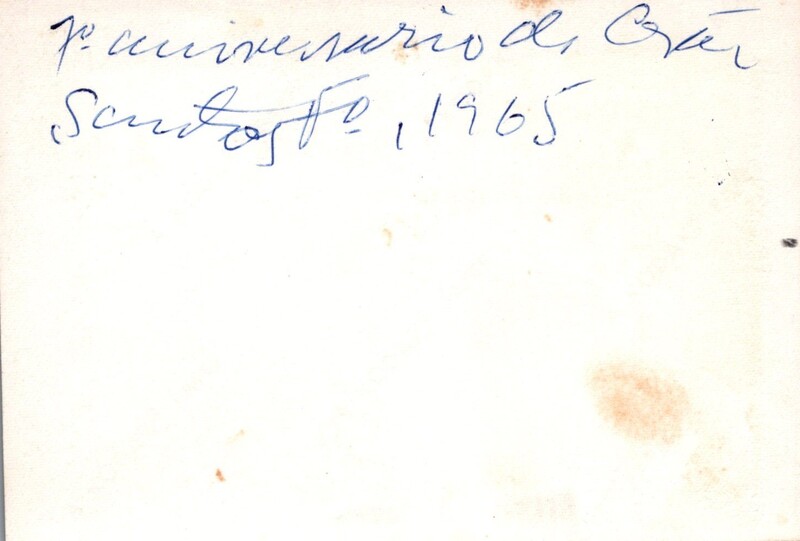 1º aniversario de César
Santos Fº, 1965